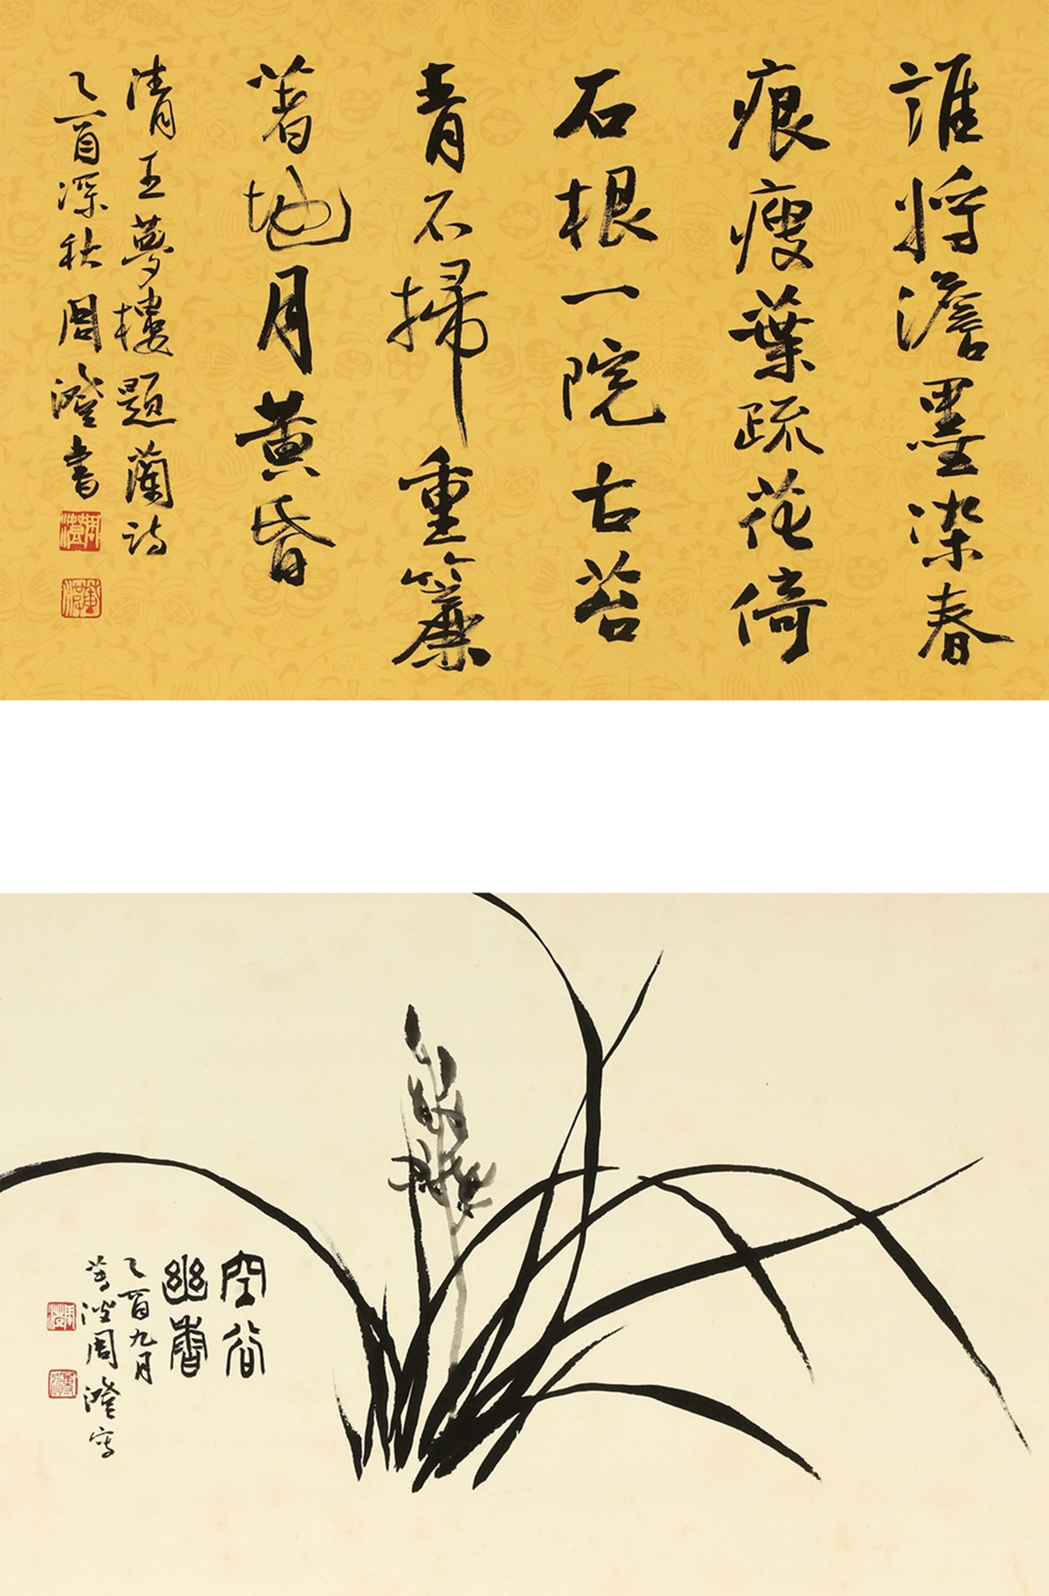 誰將澹墨染春
痕瘦葉疏花倚
石根一院古苔
青不掃重簾
著地月黃昏
清王夢樓題蘭詩
乙酉深秋周澄書
周澄
空谷
幽香
乙酉九月
蓴波周澄寫